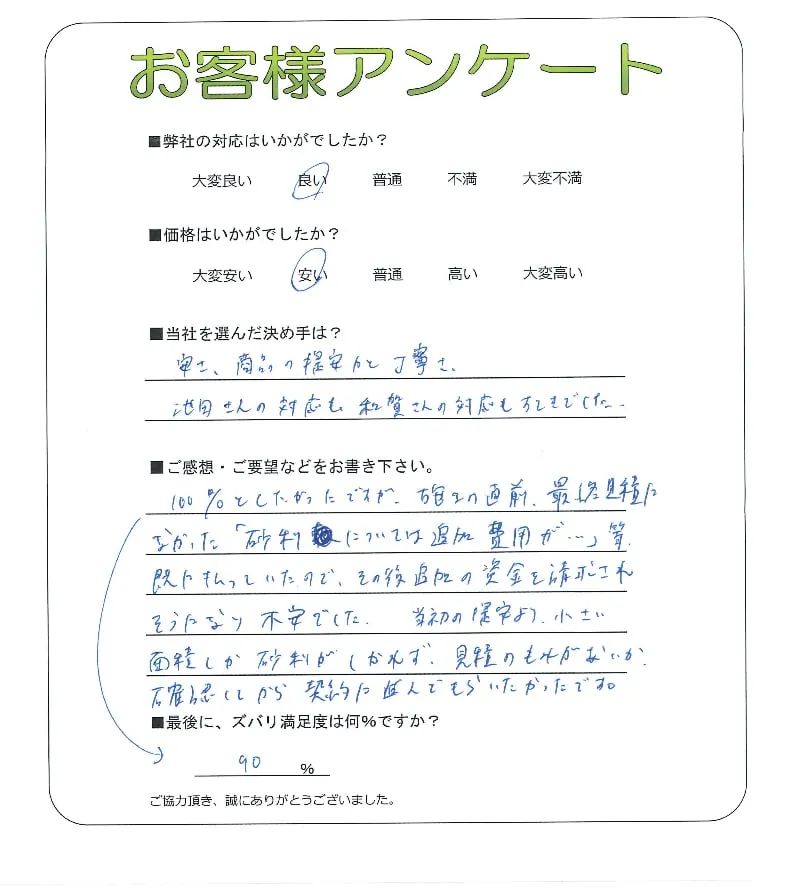 お客様アンケート
■弊社の対応はいかがでしたか？
大変良い 良い 普通 不満 大変不満
■価格はいかがでしたか？
大変安い 安い 普通 高い 大変高い
■当社を選んだ決め手は？
安さ、商品の提案力と丁寧さ、
池田さんの対応も和賀さんの対応もすてきでした。
■ご感想・ご要望などをお書き下さい。
100%としたかったですが、施工の直前、最終見積に
なかった「砂利については追加費用が…」等、
既に払っていたので、その後追加の資金を請求され
そうになり不安でした。当初の提案より、小さい
面積しか砂利がしかれず、見積のもれがないか、
確認してから契約に進んでもらいたかったです。
■最後に、ズバリ満足度は何%ですか？
90 %
ご協力頂き、誠にありがとうございました。